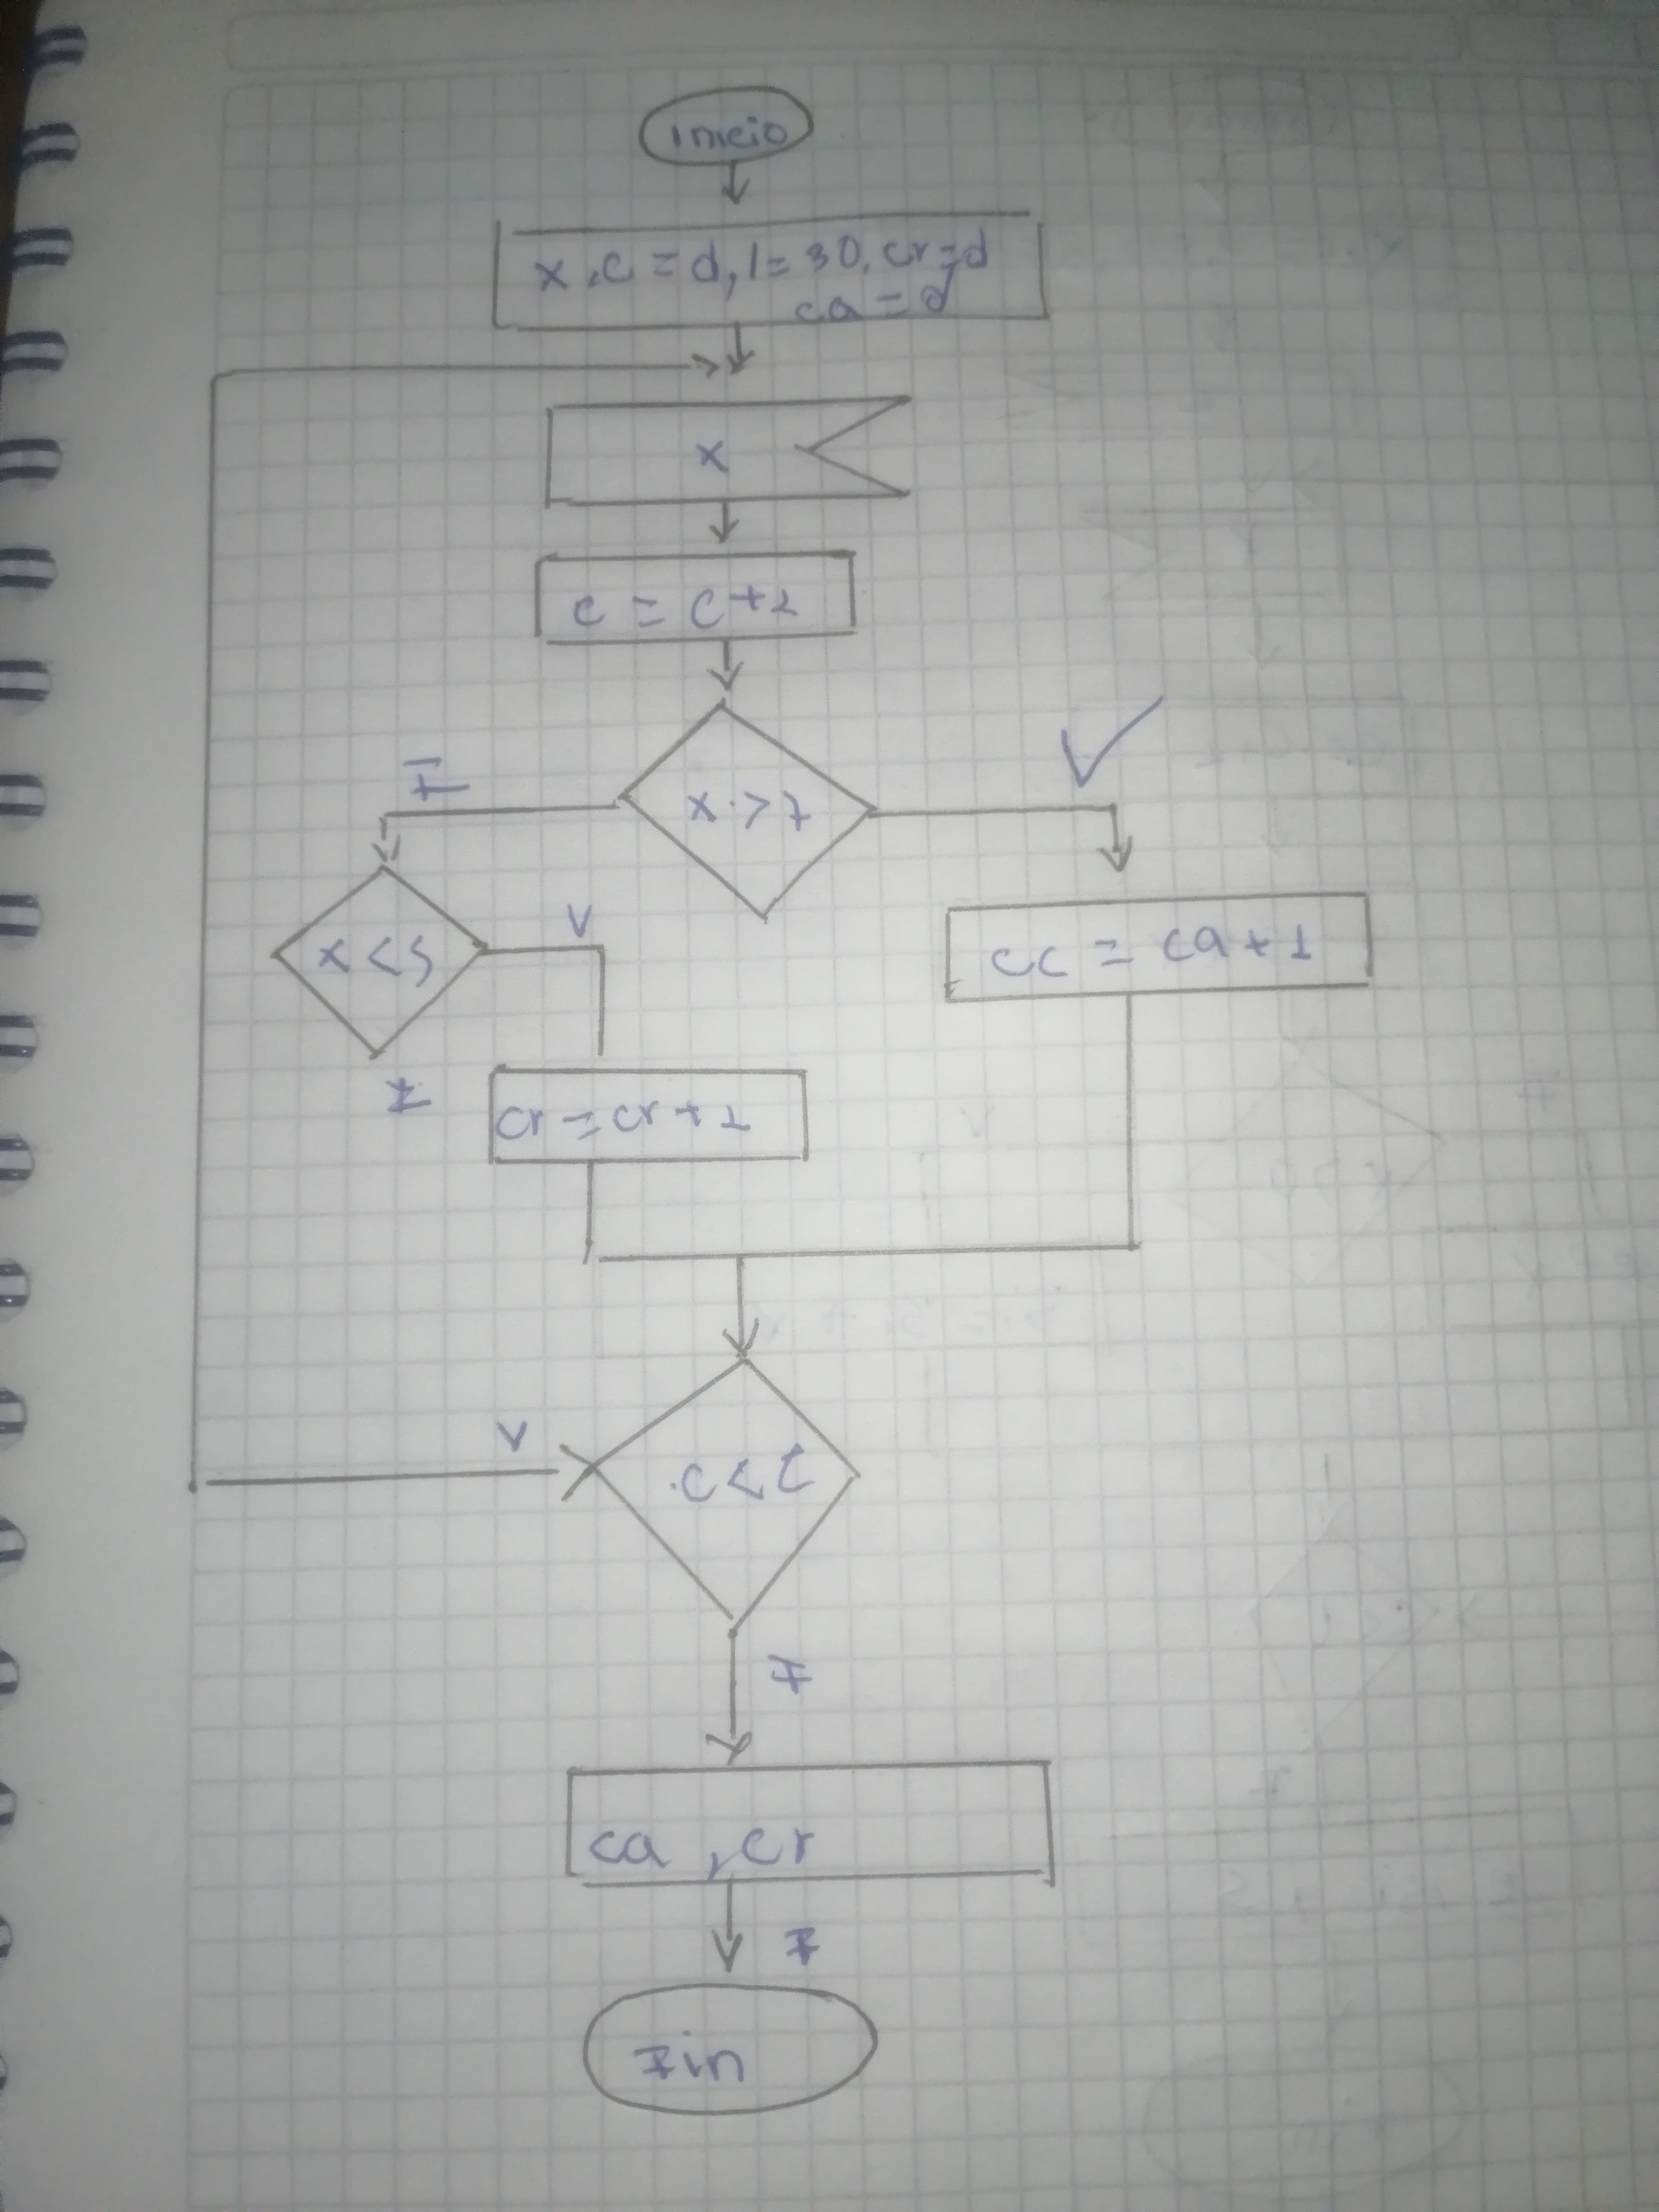 inicio
x, c = d, l = 30, cr = d
ca = d
x
c = c + 1
x > 7
F
V
x < 5
V
cc = ca + 1
F
cr = cr + 1
c < l
V
F
ca, cr
F
Fin